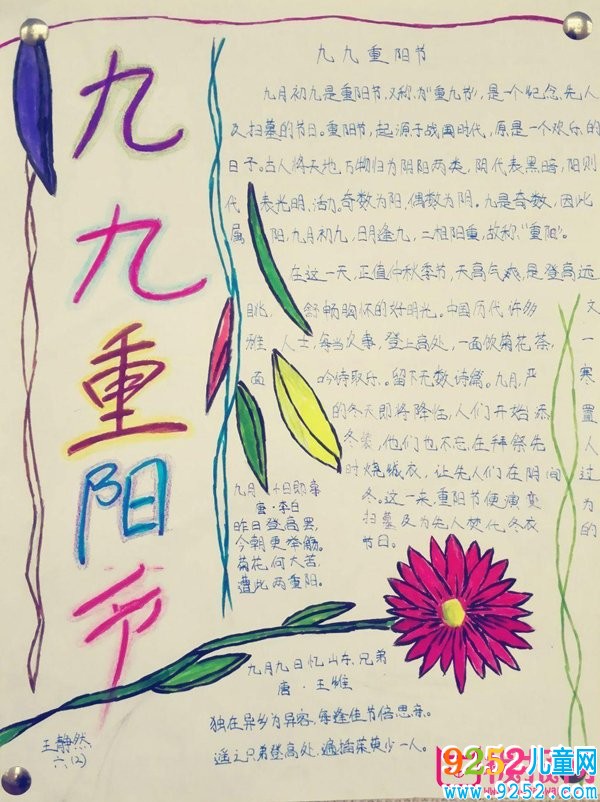 九九重阳节
九九重阳节
九月初九是重阳节,又称为"重九节",是一个纪念先人
及扫墓的节日。重阳节,起源于战国时代,原是一个欢乐的
日子。古人将天地,万物归为阴阳两类,阴代表黑暗,阳则
代表光明,活力。奇数为阳,偶数为阴。九是奇数,因此
属阳,九月初九,日月逢九,二相阳重,故称"重阳"。
在这一天,正值仲秋季节,天高气爽,是登高远
眺,舒畅胸怀的好时光。中国历代许多文
雅人士,每当次事,登上高处,一面饮菊花茶,一
面吟诗取乐。留下无数诗篇。九月,严寒
的冬天即将降临,人们开始添置
冬装,他们也不忘在拜祭先人
时烧纸衣,让先人们在阴间过
冬。这一来,重阳节便演变为
扫墓及为先人焚化冬衣的
节日。
九月十日即事
唐·李白
昨日登高罢,
今朝更举觞。
菊花何大苦,
遭此两重阳。
九月九日忆山东兄弟
唐·王维
独在异乡为异客,每逢佳节倍思亲。
遥知兄弟登高处,遍插茱萸少一人。
王静然
六(2)
9252儿童网
www.9252.com